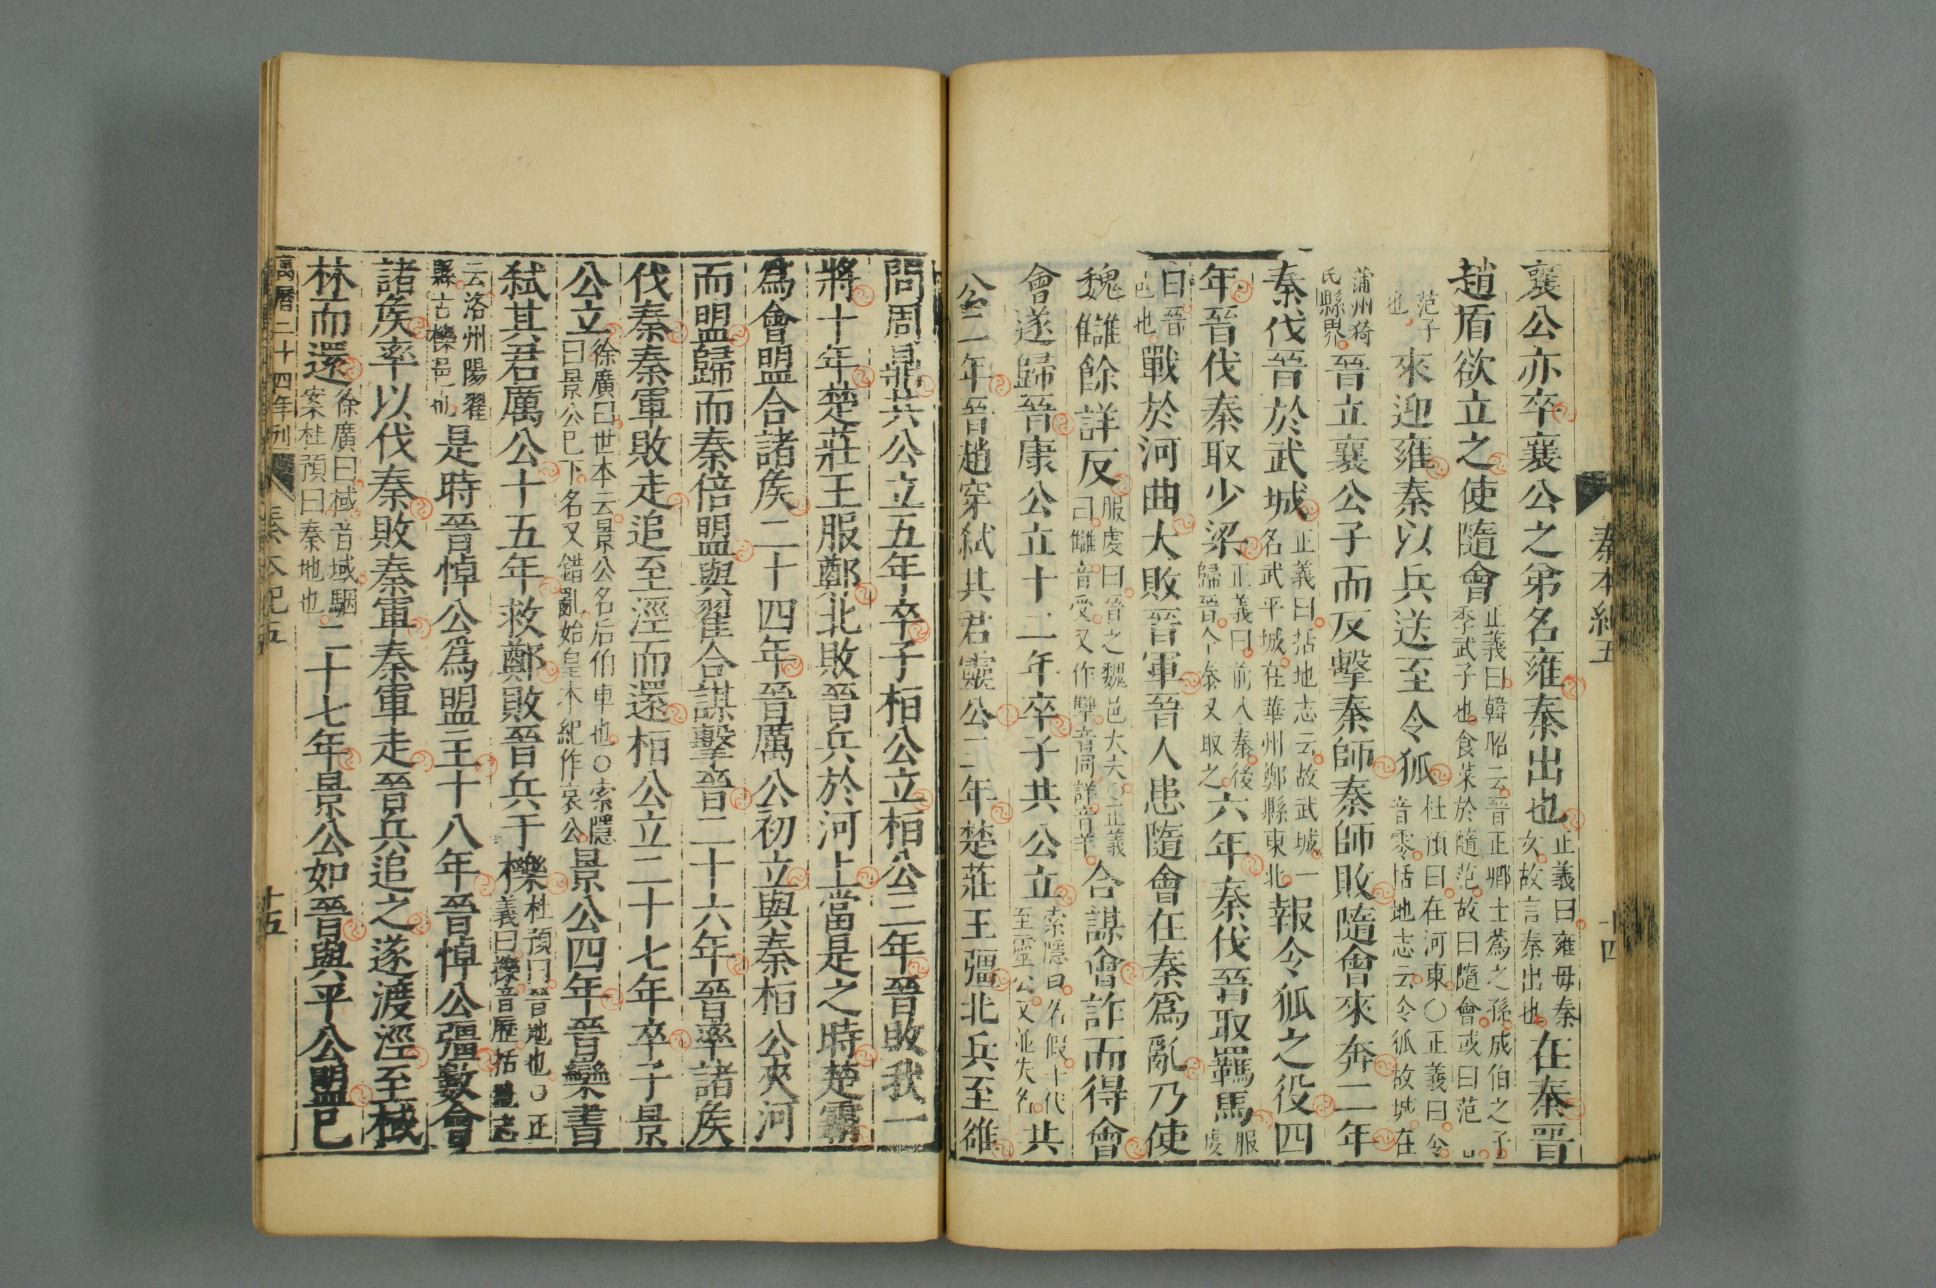 秦本紀五
十四
襄公亦卒襄公之弟名雍秦出也正義曰雍母秦女故言秦出也在秦晉
趙盾欲立之使隨會正義曰韓昭云晉正卿士蒍之孫成伯之子季武子也食菜於隨范故曰隨會或曰范
范子也來迎雍秦以兵送至令狐杜預曰在河東〇正義曰令音零括地志云令狐故城在
蒲州猗氏縣界晉立襄公子而反擊秦師秦師敗隨會來奔二年
秦伐晉於武城正義曰括地志云故武城一名武平城在華州鄭縣東北報令狐之役四
年晉伐秦取少梁正義曰前入秦後歸晉今秦又取之六年秦伐晉取羈馬服虔
曰晉邑也戰於河曲大敗晉軍晉人患隨會在秦爲亂乃使
魏讎餘詳反服虔曰晉之魏邑大夫〇正義曰讎音受又作犨音同詳音羊合謀會詐而得會
會遂歸晉康公立十二年卒子共公立索隱曰名假十代至靈公又並失名共
公二年晉趙穿弑其君靈公三年楚莊王彊北兵至雒
問周鼎共公立五年卒子桓公立桓公三年晉敗我一
將十年楚莊王服鄭北敗晉兵於河上當是之時楚霸
爲會盟合諸矦二十四年晉厲公初立與秦桓公夾河
而盟歸而秦倍盟與翟合謀擊晉二十六年晉率諸矦
伐秦秦軍敗走追至涇而還桓公立二十七年卒子景
公立徐廣曰世本云景公名后伯車也〇索隱曰景公已下名又錯亂始皇本紀作哀公景公四年晉欒書
弑其君厲公十五年救鄭敗晉兵于櫟杜預曰晉地也〇正義曰櫟音歷括地志
云洛州陽翟縣古櫟邑也是時晉悼公爲盟主十八年晉悼公彊數會
諸矦率以伐秦敗秦軍秦軍走晉兵追之遂渡涇至棫
林而還徐廣曰棫音域駰案杜預曰秦地也二十七年景公如晉與平公盟已
萬曆二十四年刊
秦本紀五
十五